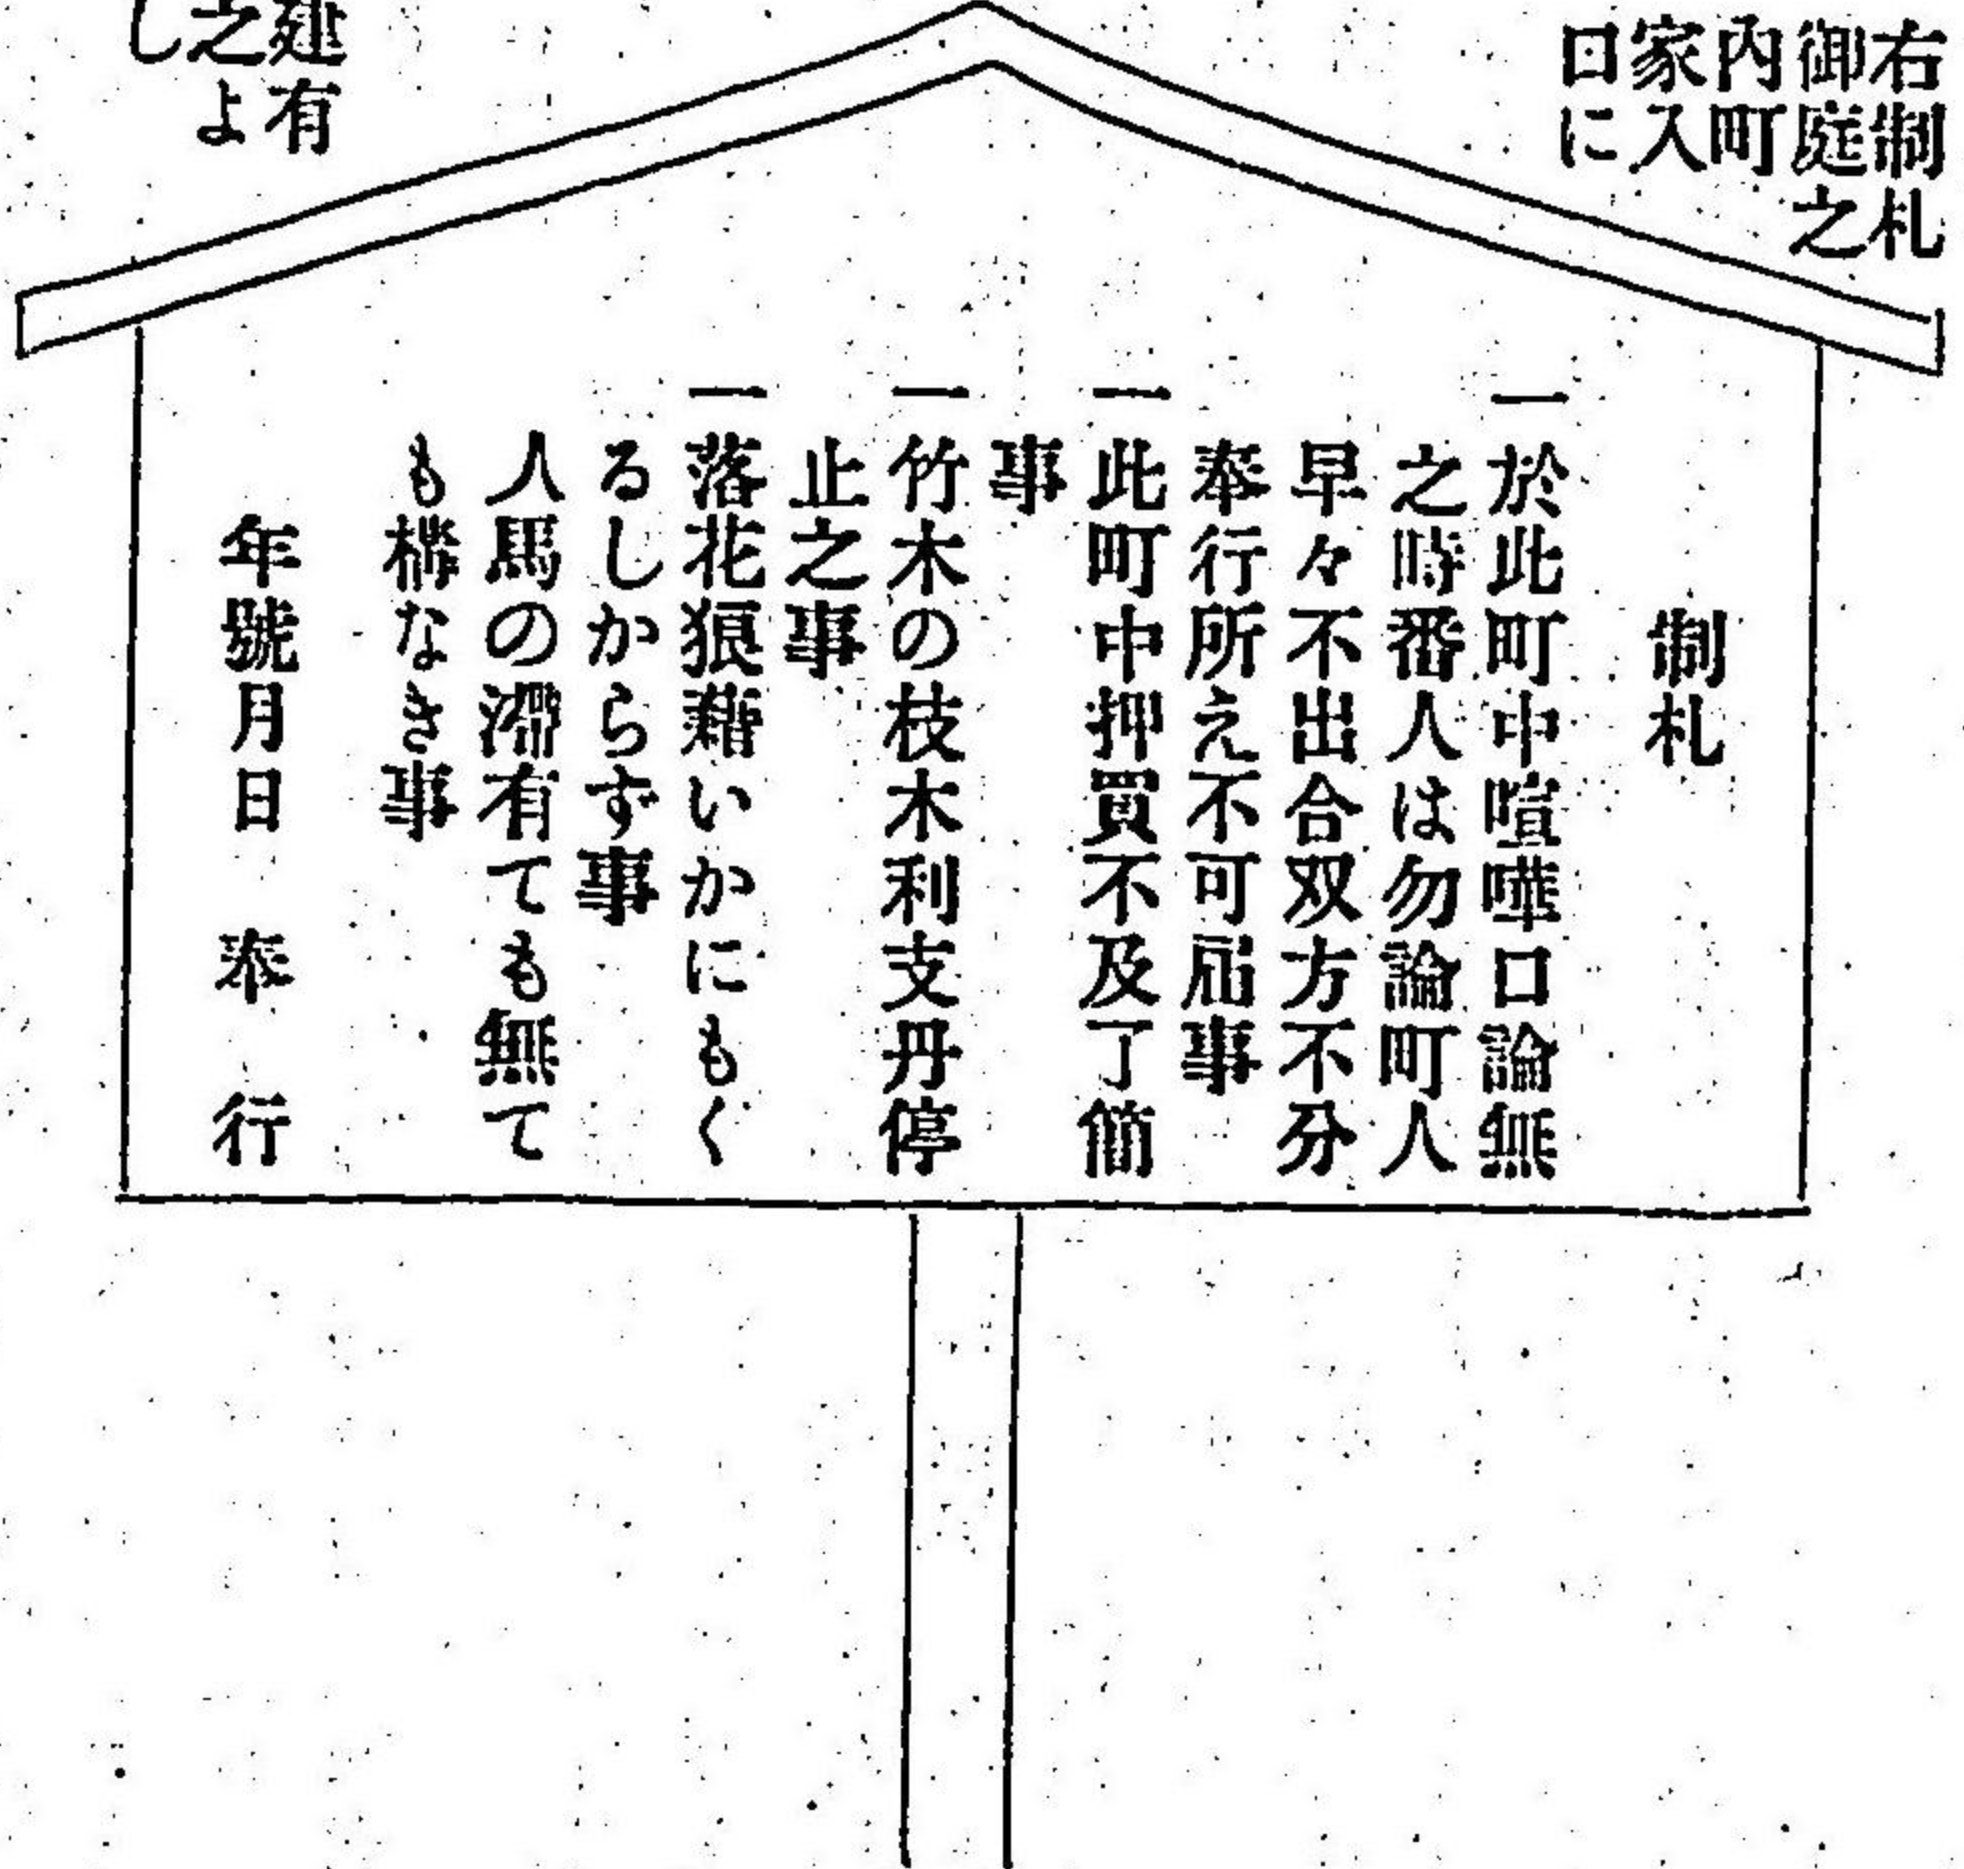 右制札
御庭之
内町
家入
口に
制札
一於此町中喧嘩口論無
之時番人は勿論町人
早々不出合双方不分
奉行所え不可届事
一此町中押買不及了簡
事
一竹木の枝木利支丹停
止之事
一落花狼藉いかにもぐ
るしからず事
人馬の滯有ても無て
も構なき事
年號月日奉行
建有
之よ
し